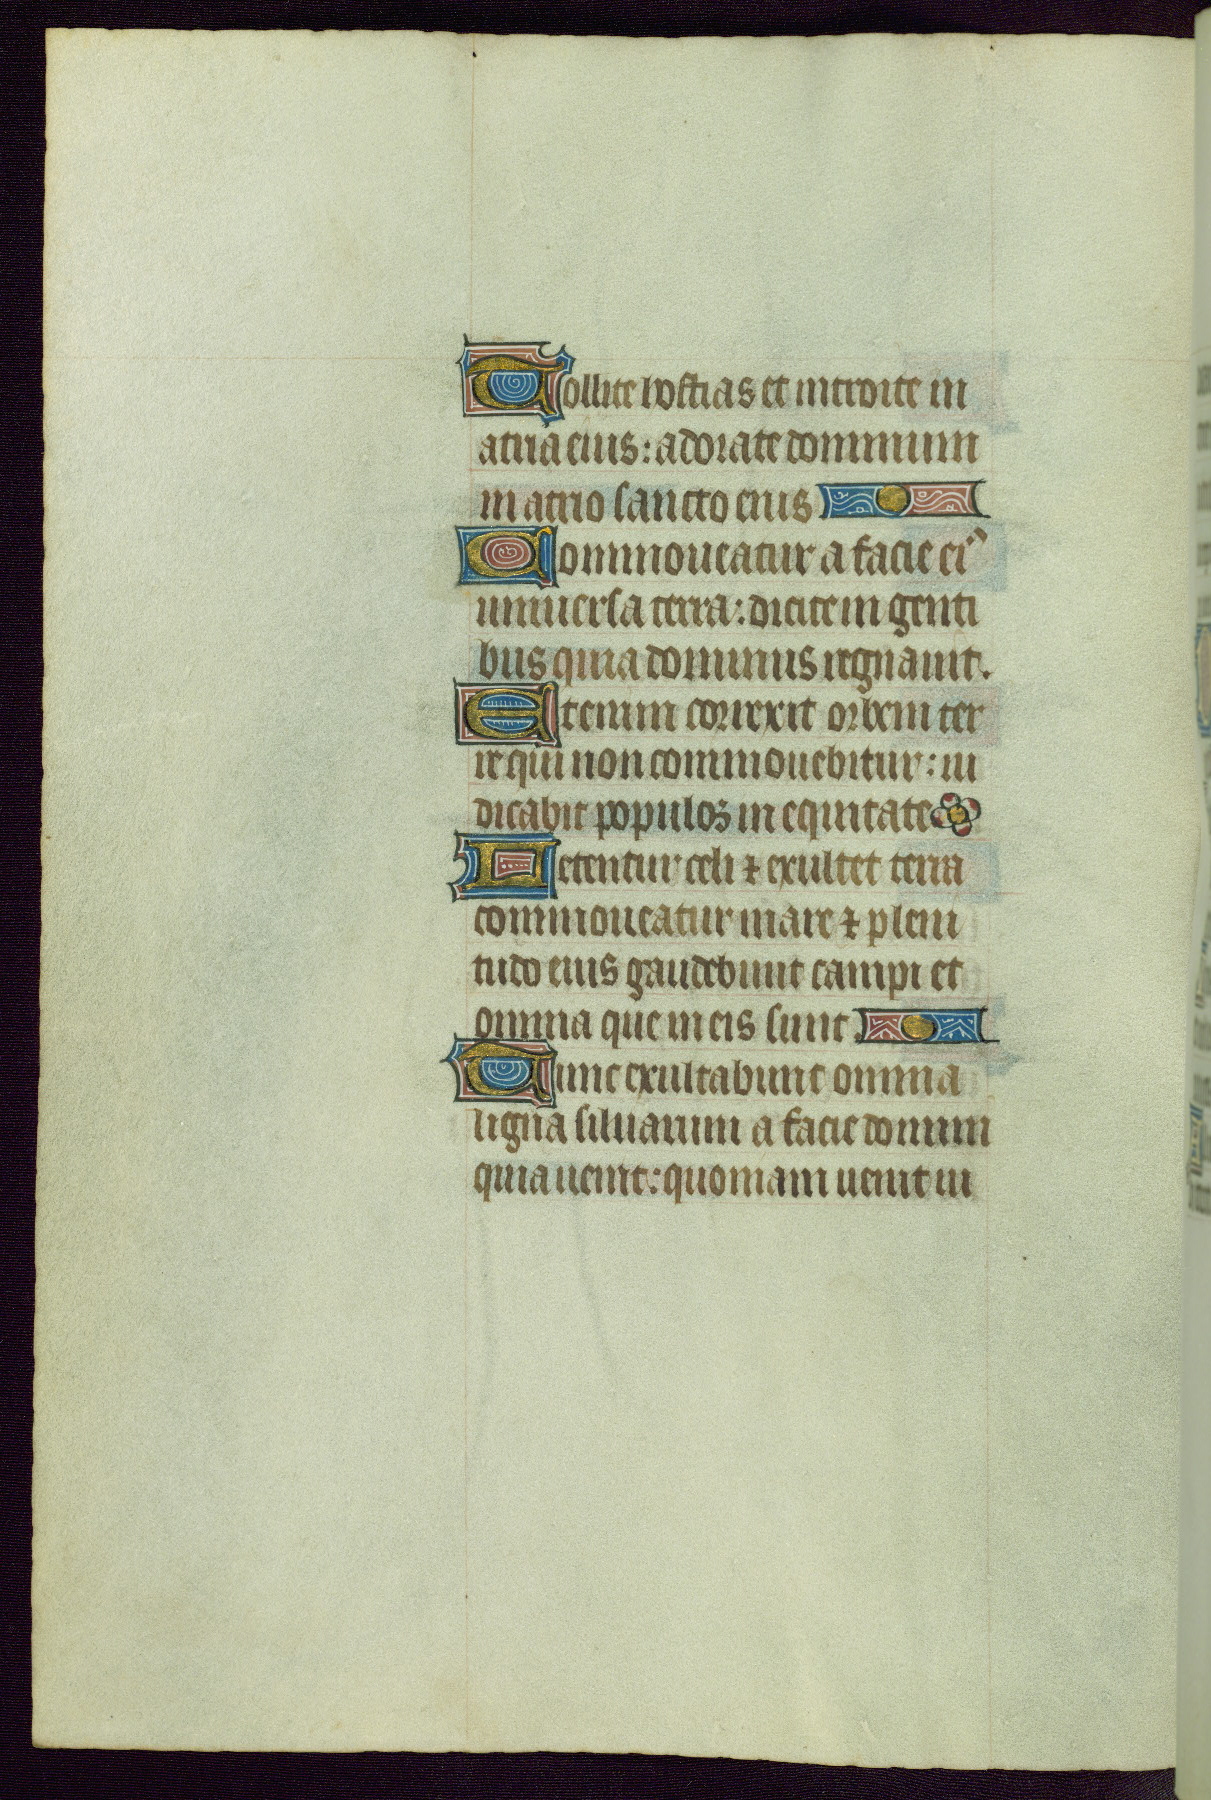 Tollite hostias et introite in
atria eius: adorate dominum
in atrio sancto eius
Commoueatur a facie ei⁹
uniuersa terra: dicite in genti
bus quia dominus regnauit.
Etenim correxit orbem ter
re qui non commouebitur: iu
dicabit populos in equitate
Letentur celi ⁊ exultet terra
commoueatur mare ⁊ pleni
tudo eius gaudebunt campi et
omnia que in eis sunt.
Tunc exultabunt omnia
ligna siluarum a facie domini
quia uenit: quoniam uenit iu